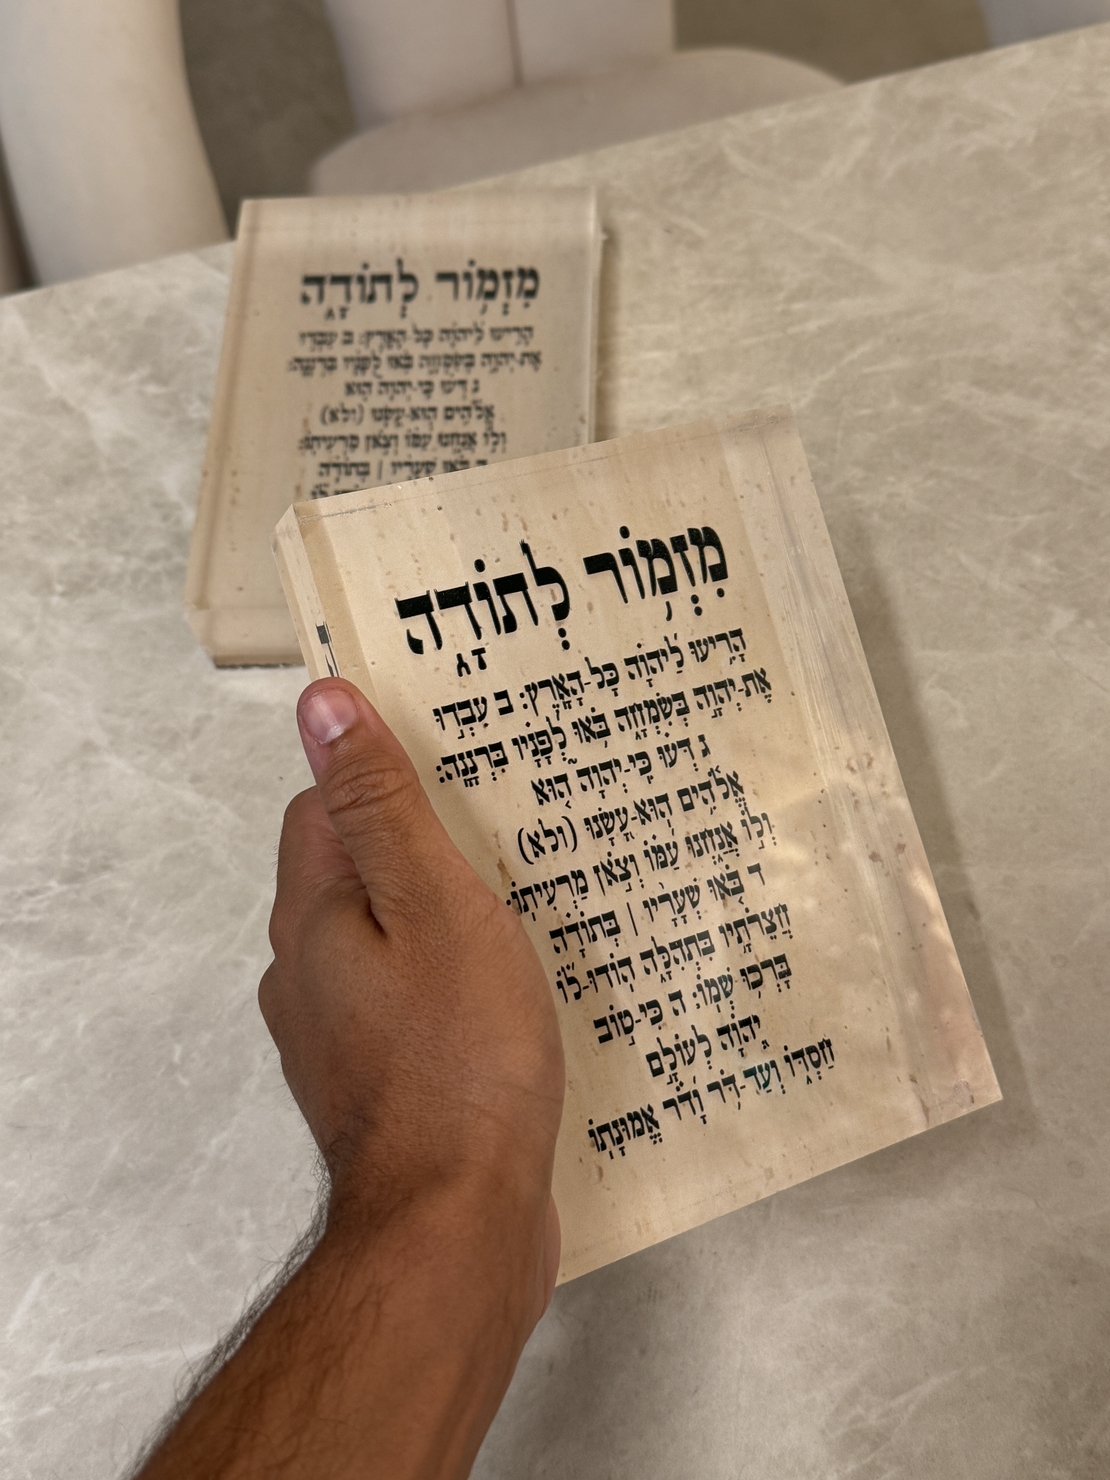 מִזְמ֥וֹר לְתוֹדָ֑ה
הָרִ֥יעוּ לַ֝יהוָ֗ה כָּל־הָאָֽרֶץ׃ ב עִבְד֣וּ
אֶת־יְהוָ֣ה בְּשִׂמְחָ֑ה בֹּ֥אוּ לְ֝פָנָ֗יו בִּרְנָנָֽה׃
ג דְּע֗וּ כִּֽי־יְהוָה֮ ה֤וּא
אֱלֹ֫הִ֥ים הֽוּא־עָ֭שָׂנוּ (ולא)
וְל֣וֹ אֲנַ֑חְנוּ עַ֝מּ֗וֹ וְצֹ֣אן מַרְעִיתֽוֹ׃
ד בֹּ֤אוּ שְׁעָרָ֨יו ׀ בְּתוֹדָ֗ה
חֲצֵרֹתָ֥יו בִּתְהִלָּ֑ה הֽוֹדוּ־ל֝֗וֹ
בָּרְכ֥וּ שְׁמֽוֹ׃ ה כִּי־ט֣וֹב
יְ֭הוָה לְעוֹלָ֣ם
חַסְדּ֑וֹ וְעַד־דֹּ֥ר וָ֝דֹ֗ר אֱמוּנָתֽוֹ
מִזְמ֥וֹר לְתוֹדָ֑ה
הָרִ֥יעוּ לַ֝יהוָ֗ה כָּל־הָאָֽרֶץ׃ ב עִבְד֣וּ
אֶת־יְהוָ֣ה בְּשִׂמְחָ֑ה בֹּ֥אוּ לְ֝פָנָ֗יו בִּרְנָנָֽה׃
ג דְּע֗וּ כִּֽי־יְהוָה֮ ה֤וּא
אֱלֹ֫הִ֥ים הֽוּא־עָ֭שָׂנוּ (ולא)
וְל֣וֹ אֲנַ֑חְנוּ עַ֝מּ֗וֹ וְצֹ֣אן מַרְעִיתֽוֹ׃
ד בֹּ֤אוּ שְׁעָרָ֨יו ׀ בְּתוֹדָ֗ה